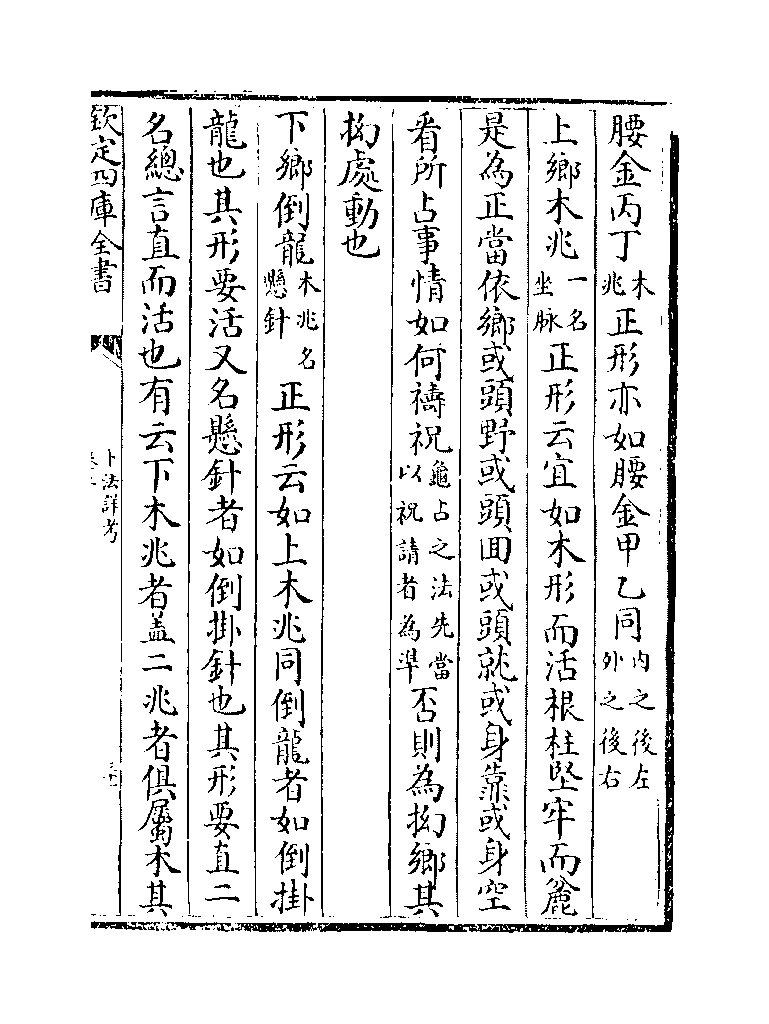 腰金丙丁木兆正形亦如腰金甲乙同内之後左外之後右
上鄉木兆一名坐脉正形云宜如木形而活根柱堅牢而麄
是為正當依鄉或頭野或頭囬或頭就或身靠或身空
看所占事情如何禱祝龜占之法先當以祝請者為準否則為拗鄉其
拗處動也
下鄉倒龍木兆名懸針正形云如上木兆同倒龍者如倒掛
龍也其形要活又名懸針者如倒掛針也其形要直二
名總言直而活也有云下木兆者盖二兆者俱屬木其
欽定四庫全書
卜法詳考